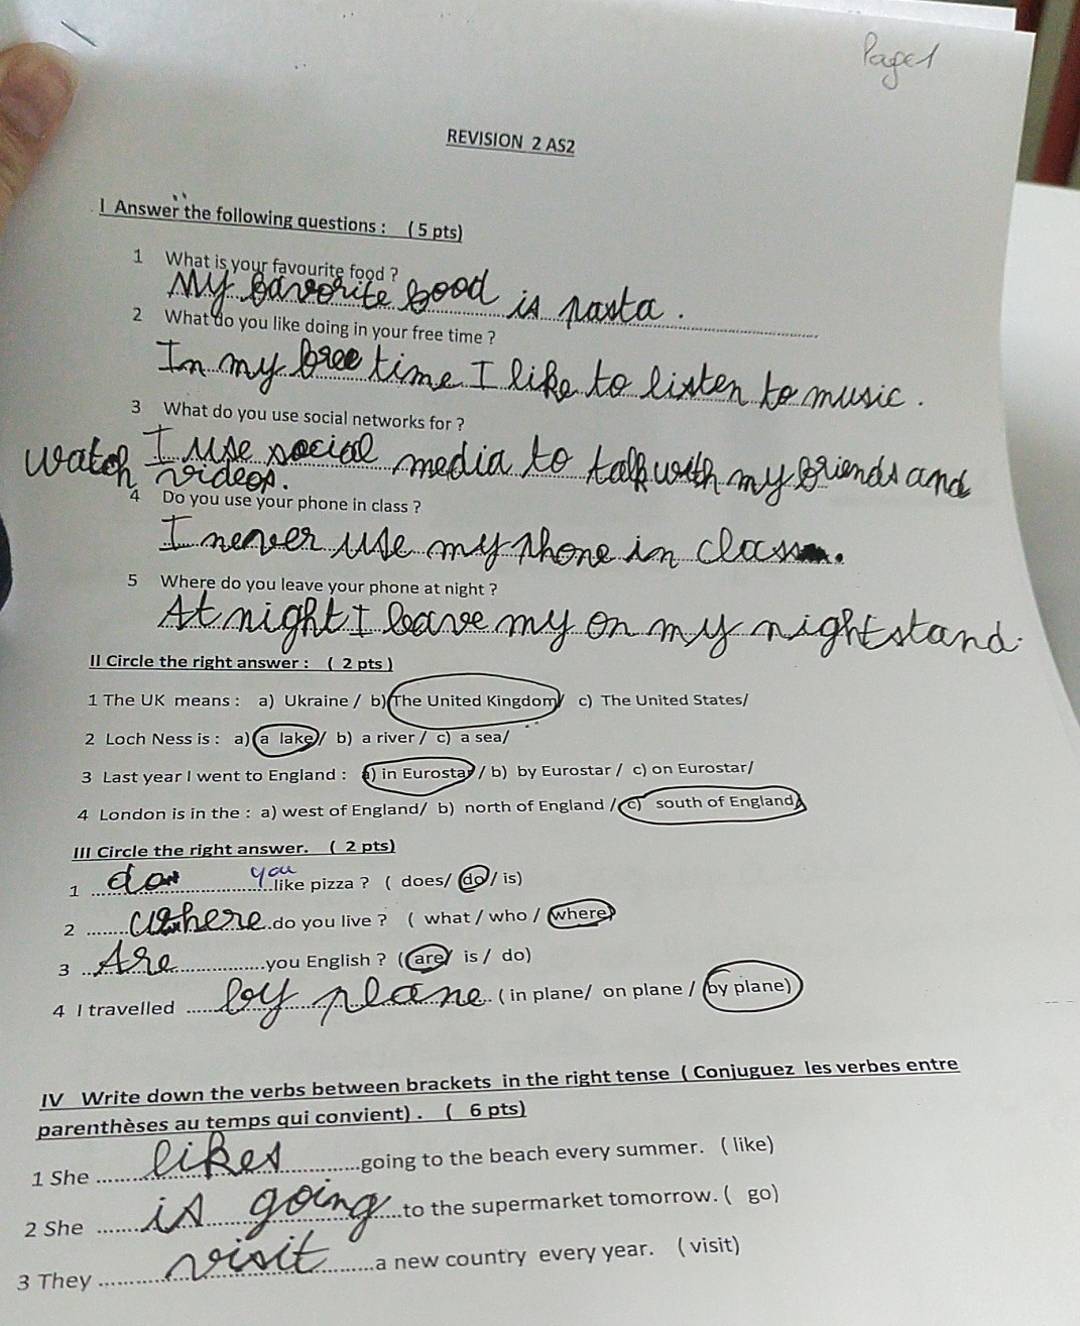 Page 1
REVISION 2 AS2
I Answer the following questions : ( 5 pts)
1 What is your favourite food ?
My favorite food is pasta.
2 What do you like doing in your free time ?
In my free time I like to listen to music.
3 What do you use social networks for ?
I use social media to talk with my friends and
watch videos.
4 Do you use your phone in class ?
I never use my phone in class.
5 Where do you leave your phone at night ?
At night I leave my on my nightstand.
II Circle the right answer : ( 2 pts )
1 The UK means : a) Ukraine / b) The United Kingdom/ c) The United States/
2 Loch Ness is : a) a lake / b) a river / c) a sea/
3 Last year I went to England : a) in Eurostar / b) by Eurostar / c) on Eurostar/
4 London is in the : a) west of England/ b) north of England / c) south of England/
III Circle the right answer. ( 2 pts)
1 do you like pizza ? ( does/ do / is)
2 where do you live ? ( what / who / where)
3 Are you English ? ( are/ is / do)
4 I travelled by plane ( in plane/ on plane / by plane)
IV Write down the verbs between brackets in the right tense ( Conjuguez les verbes entre
parenthèses au temps qui convient) . ( 6 pts)
1 She likes going to the beach every summer. ( like)
2 She is going to the supermarket tomorrow. ( go)
3 They visit a new country every year. ( visit)